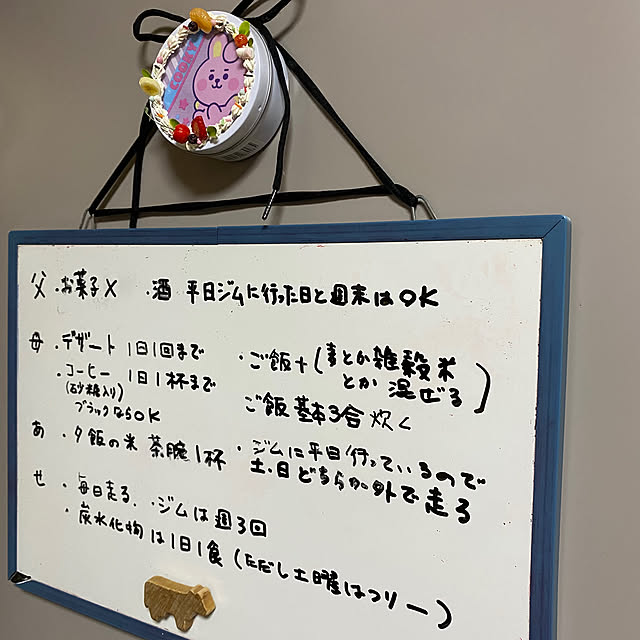 COOKY
父 ・お菓子× ・酒 平日ジムに行った日と週末はOK
母 ・デザート 1日1回まで
・コーヒー 1日1杯まで
(砂糖入り)
ブラックならOK
・ご飯+(麦とか雑穀米
とか 混ぜる)
ご飯基本3合炊く
あ ・夕飯の米 茶腕1杯
・ジムに平日行っているので
土・日どちらか外で走る
せ ・毎日走る。・ジムは週3回
・炭水化物は1日1食(ただし土曜はフリー)